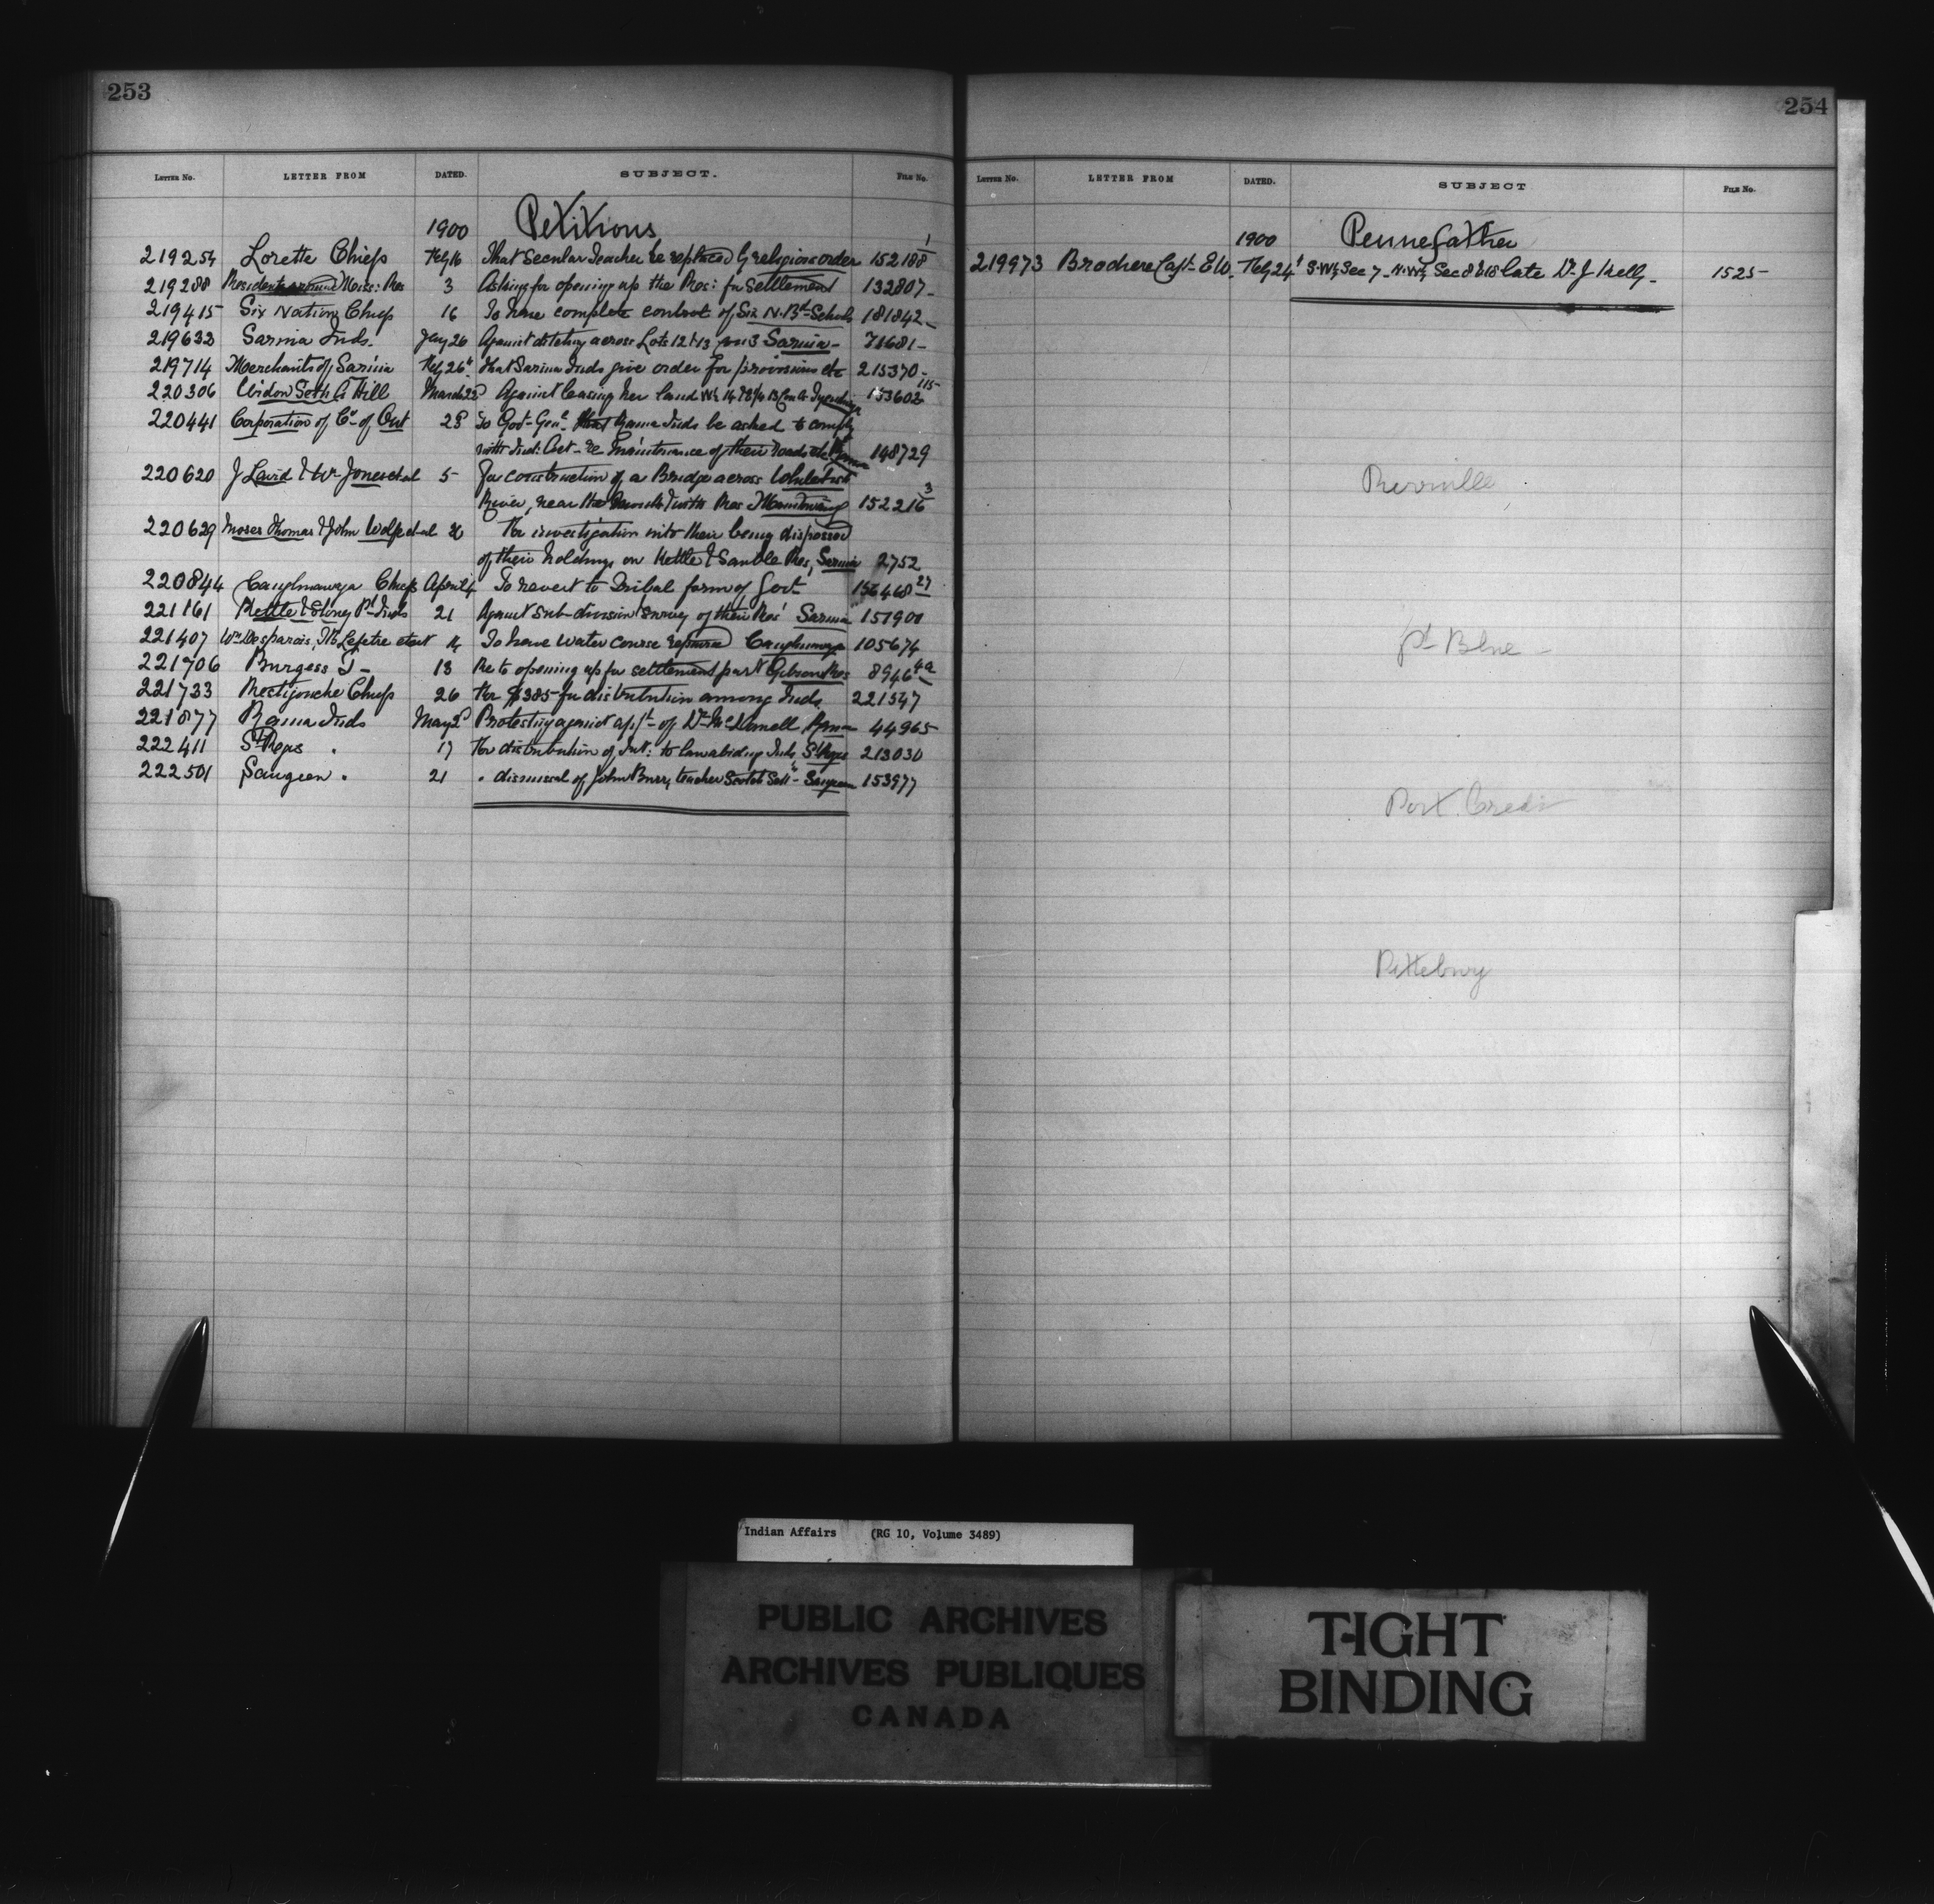 253
LETTER NO. LETTER FROM DATED. SUBJECT. FILE NO.
1900 Petitions
219254 Lorette Chiefs Feby 16 That Secular Teacher be replaced by religious order 152188 1
219288 Residents around Miss: Res 3 Asking for opening up the Res: for settlement 132807-
219415 Six Nations Chiefs 16 To have complete control of Six N. Bd. Schools 181842-
219632 Sarnia Inds. Jany 26 Against ditching across Lots 12 & 13 3 Sarnia- 71681-
219714 Merchants of Sarnia Feby 26th That Sarnia Inds give order for provisions etc 215370-
220306 Widow Seth A Hill March 22d Against leasing her land 153602 115
220441 Corporation of Co. of Ont 28 To Govr-Genl. that Rama Inds be asked to comply
with Ind: Act - re Maintenance of their roads etc Rama 148729
220620 J Laird & Wm Jones et al 5 For construction of a Bridge across
River, near the mouth Res Manitowaning 152216 3
220629 Moses Thomas & John Wolfe et al 26 For investigation into their being dispossed
of their holdings on Kettle & Sauble Res, Sarnia 2752
220844 Caughnawaga Chiefs April 4 To revert to Tribal form of Govt 156468 27
221161 Kettle & Stoney Pt Inds 21 Against Sub-division Survey of their Res' Sarnia 151901
221407 et al 14 To have water course repaired Caughnawaga 105674
221706 Burgess J- 18 Re to opening up for settlement part Gibson Res 8946 4a
221733 Restigouche Chiefs 26 For $385- for distribution among Inds 221547
221877 Rama Inds May 2d Protesting against appt- of Dr McDonell Rama 44965-
222411 St Regis . 17 For distribution of Int: to law abiding Inds, St Regis 213030
222501 Saugeen . 21 . dismissal of John Burr, teacher Scotch Sett- Saugeen 153977
254
LETTER NO. LETTER FROM DATED. SUBJECT FILE NO.
1900 Pennefather
219973 Capt- E W. Feby 24 S.W¼ Sec 7 - N.W¼ Sec 8 & 18 late Dr J Kelly- 1525-
pt Blue -
Port Credit
Indian Affairs (RG 10, Volume 3489)
PUBLIC ARCHIVES
ARCHIVES PUBLIQUES
CANADA
TIGHT
BINDING